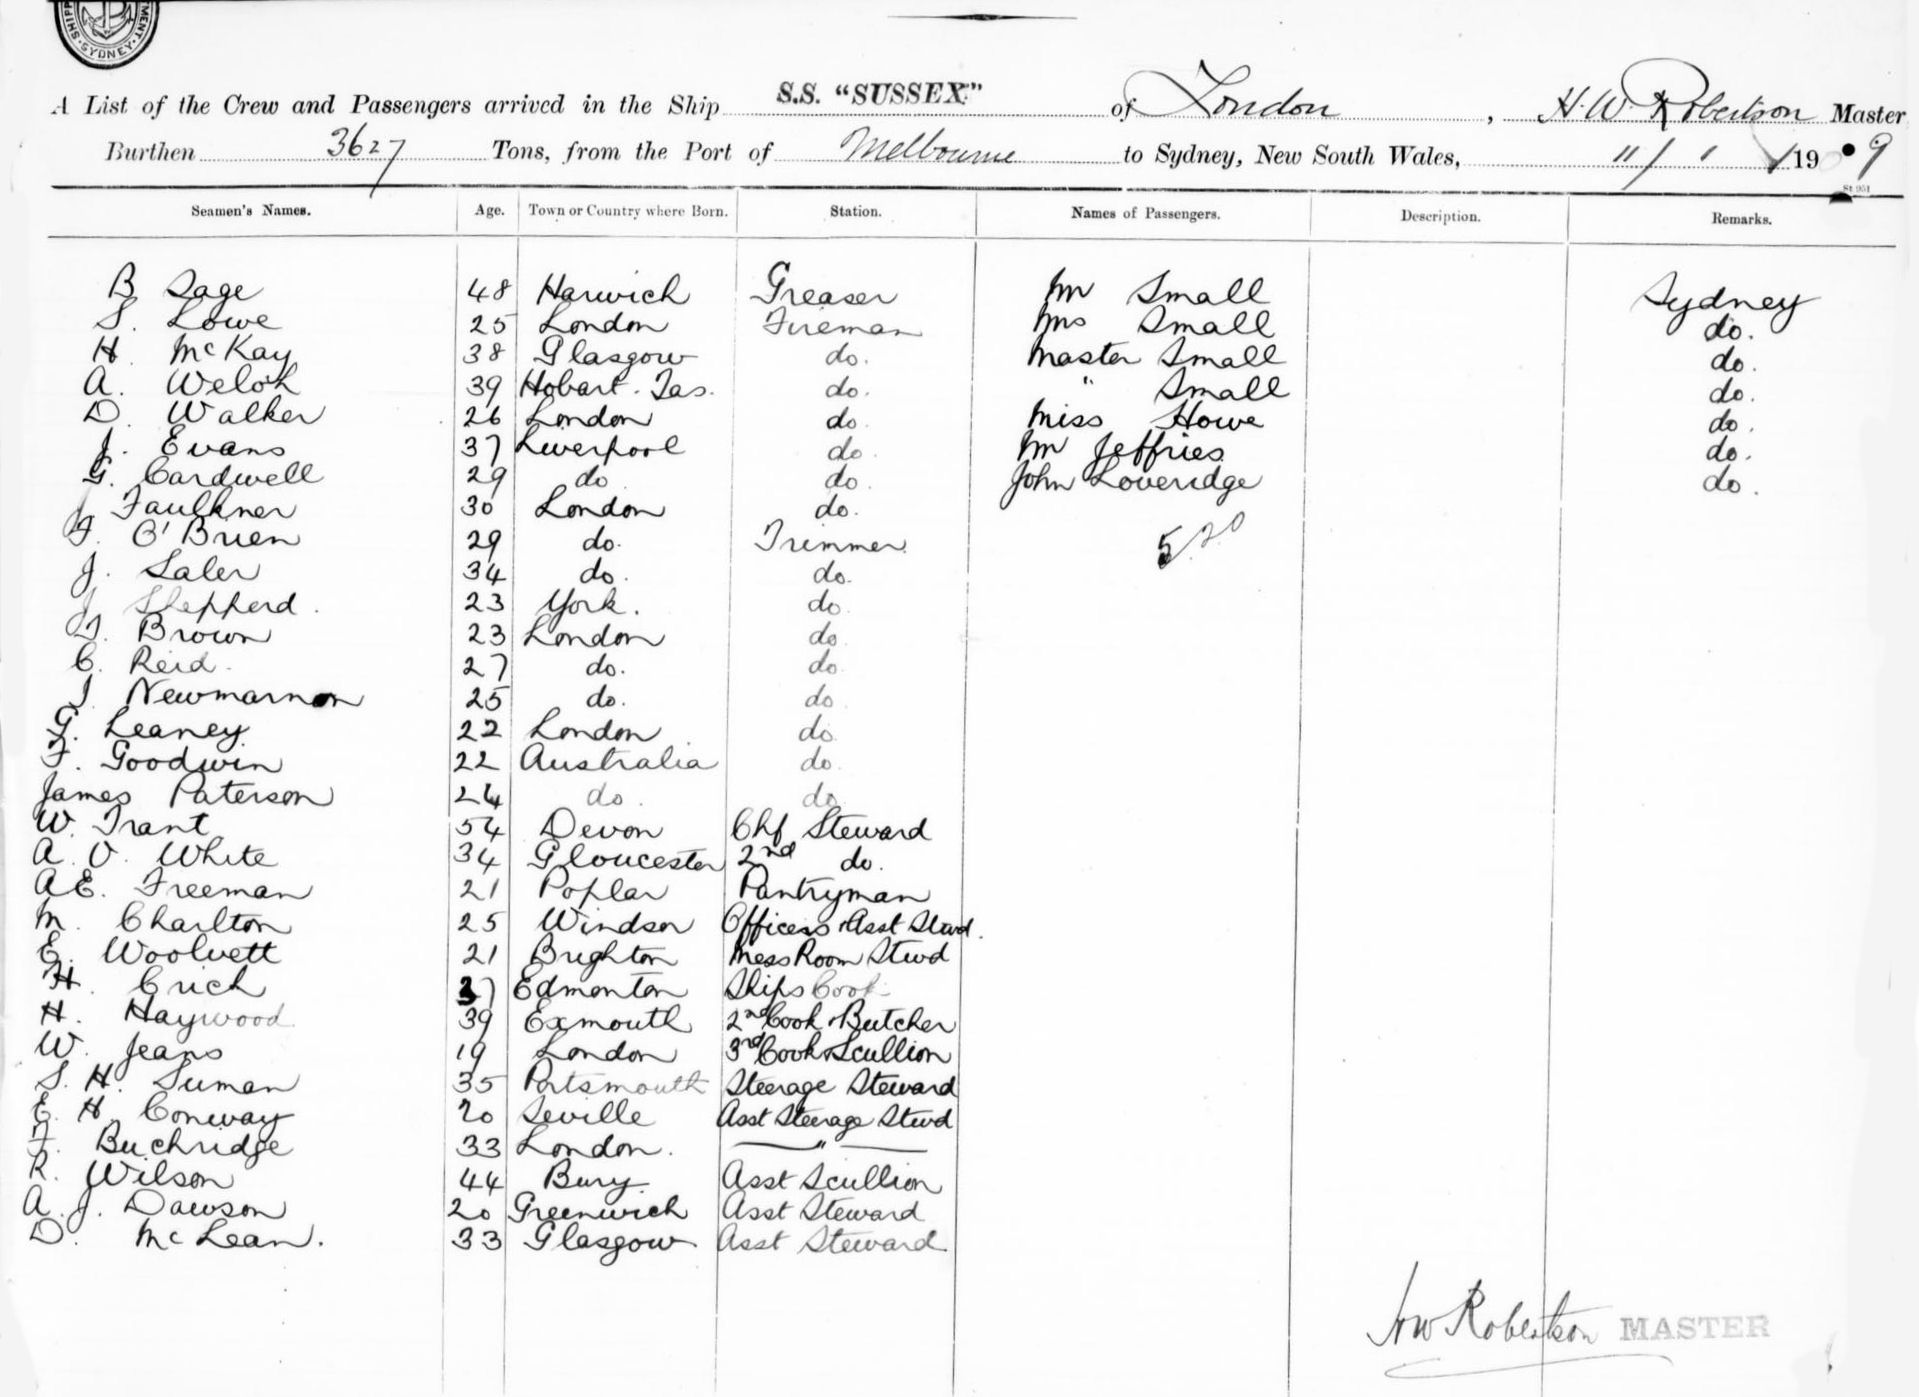 SHIPP MENT. SYDNEY.
A List of the Crew and Passengers arrived in the Ship S.S. "SUSSEX" of London, H. W. Robertson Master
Burthen 3627 Tons, from the Port of Melbourne to Sydney, New South Wales, 11/1/1909
St 951
Seamen's Names. Age. Town or Country where Born. Station. Names of Passengers. Description. Remarks.
B Sage 48 Harwich Greaser Mr Small Sydney
S. Lowe 25 London Fireman Mrs Small do.
H McKay 38 Glasgow do. Master Small do.
A. Welch 39 Hobart. Tas. do. " Small do.
D. Walker 26 London do. Miss Howe do.
J. Evans 37 Liverpool do. Mr Jeffries do.
G. Cardwell 29 do do. John Loveridge do.
J Faulkner 30 London do.
F. O'Brien 29 do. Trimmer 5.20
J. Saler 34 do. do.
J Shepperd. 23 York. do.
Brown 23 London do
C. Reid. 27 do. do.
J Newmarnon 25 do. do
G. Leaney 22 London do.
F. Goodwin 22 Australia do.
James Paterson 24 do. do
W. Trant 54 Devon Chf Steward
A. V. White 34 Gloucester 2nd do.
A E. Freeman 21 Poplar Pantryman
M. Charlton 25 Windsor Officers & Asst Stwd.
E. Woolvett 21 Brighton Mess Room Stwd
H. Crich 37 Edmonton Ships Cook
H. Haywood 39 Exmouth 2nd Cook & Butcher
W. Jeans 19 London 3rd Cook & Scullion
S. H. Suman 35 Portsmouth Steerage Steward
E. H. Conway 20 Seville Asst Steerage Stwd
F. Buchridge 33 London. — " —
R. Wilson 44 Bury. Asst Scullion
A. J. Dawson 20 Greenwich Asst Steward
D. McLean. 33 Glasgow. Asst Steward
HW Robertson MASTER